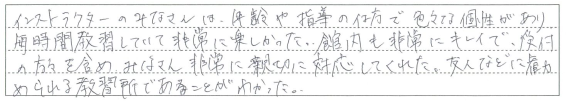 インストラクターのみなさんは、年齢や指導の仕方で色々な個性があり
毎時間教習していて非常に楽しかった。館内も非常にキレイで、受付
の方々を含め、みなさん非常に親切に対応してくれた。友人などに薦
められる教習所であることがわかった。